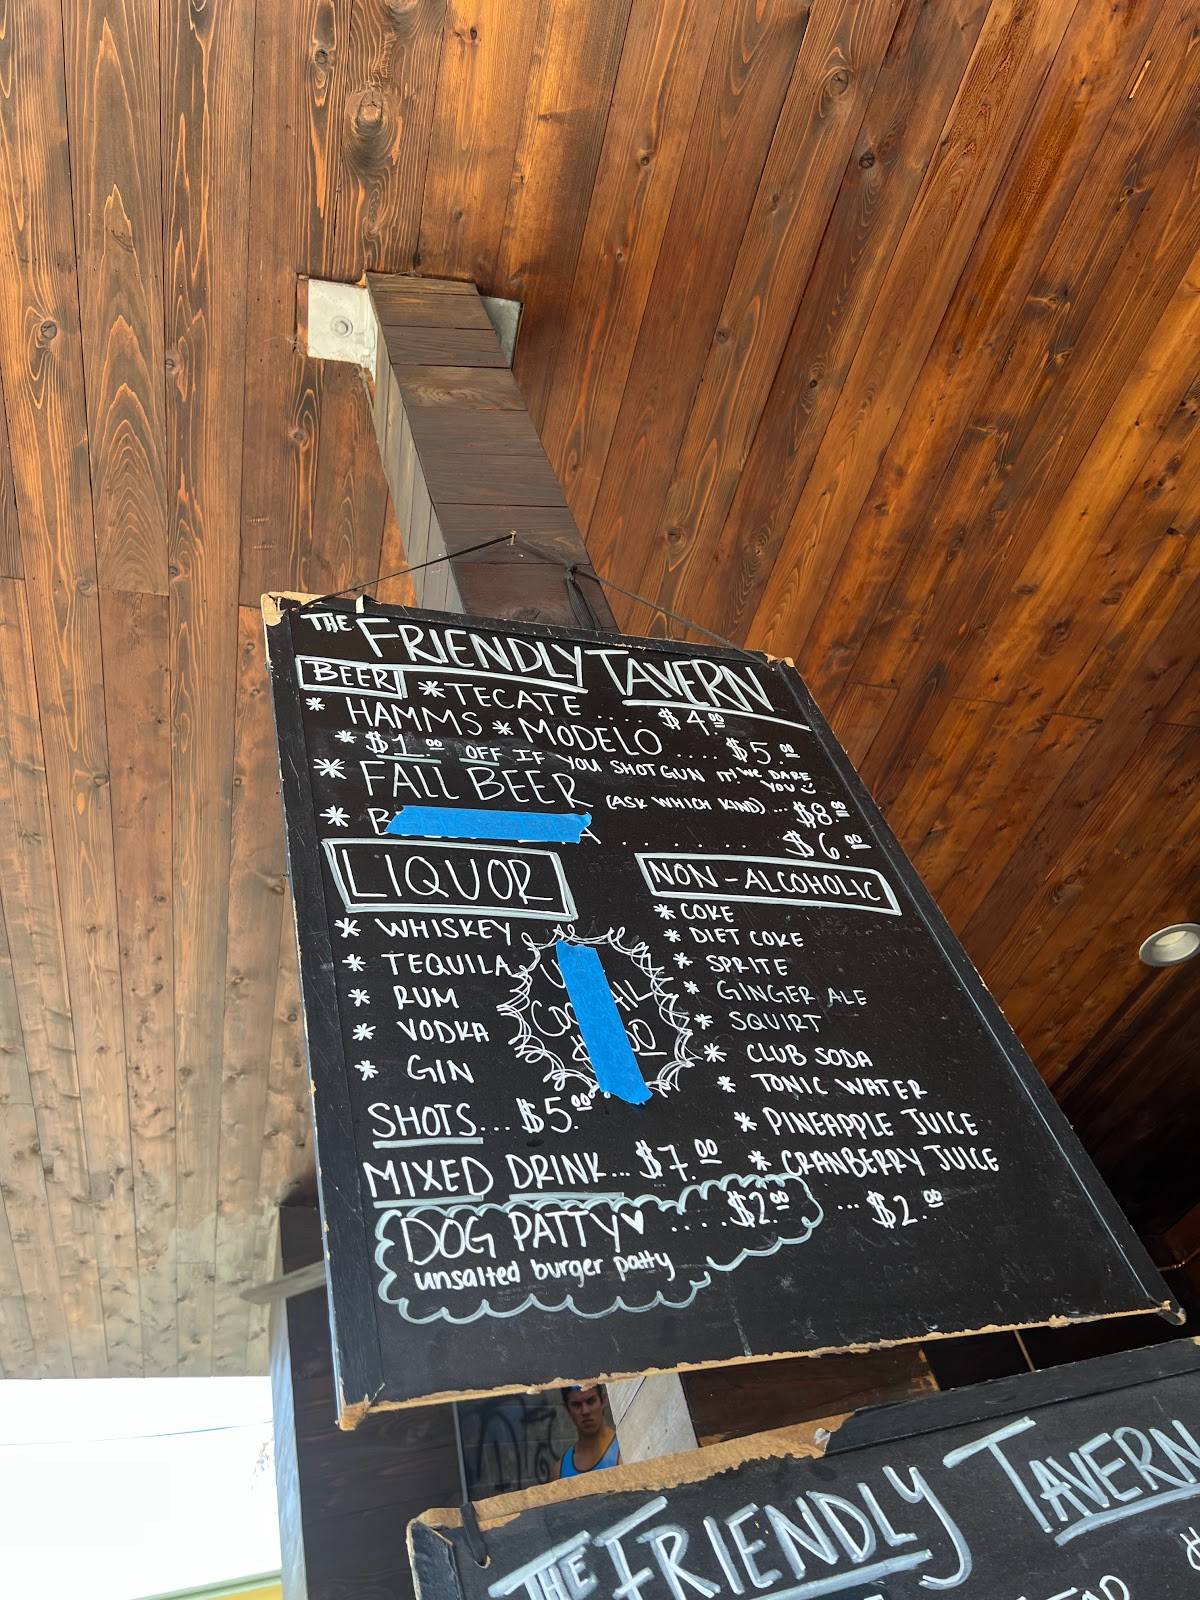 THE FRIENDLY TAVERN
BEER * TECATE .... $4.00
* HAMMS * MODELO .... $5.00
* $1.00 OFF IF YOU SHOTGUN IT! WE DARE YOU
* FALL BEER (ASK WHICH KIND) ... $8.00
* B ........ $6.00
LIQUOR
* WHISKEY
* TEQUILA
* RUM
* VODKA
* GIN
SHOTS... $5.00
MIXED DRINK... $7.00
DOG PATTY ♥ .... $2.00
unsalted burger patty
NON-ALCOHOLIC
* COKE
* DIET COKE
* SPRITE
* GINGER ALE
* SQUIRT
* CLUB SODA
* TONIC WATER
* PINEAPPLE JUICE
* CRANBERRY JUICE
... $2.00
THE FRIENDLY TAVERN